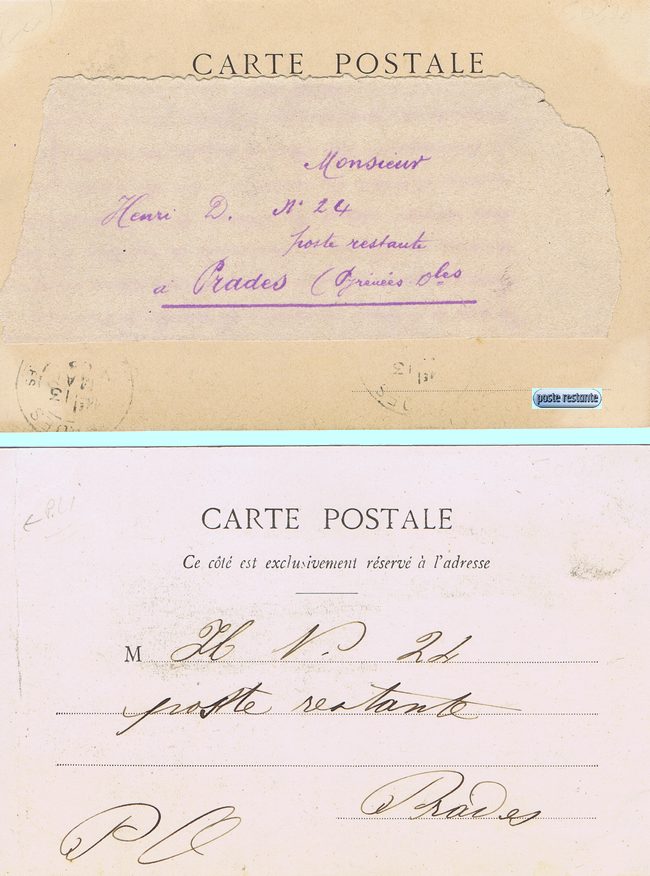 CARTE POSTALE
Monsieur
Henri D. N° 24
poste restante
à Prades (Pyrénées Oles
poste restante
CARTE POSTALE
Ce côté est exclusivement réservé à l'adresse
M H N° 24
poste restante
Prades
P O